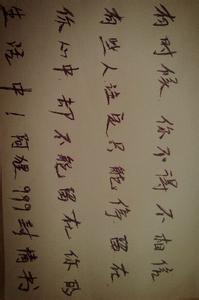 有时候，你不得不相信
有些人注定只能停留在
你心中却不能留在你的
生活中！阿娌999封情书